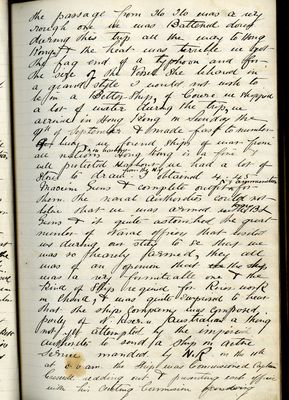 the passage from Ilo Ilo was a very
rough one we was Battened down
during this trip all the way to Hong
Kong & the heat was terrible we got
the fag end of a Typhoon and
the side of the Vessel She behaved in
a grand style I would not wish to
be in a Better Ship of Course we shipped
a lot of water during the trip, we
arrived in Hong Kong on Sunday the
9th of September & made fast to number
buoy we found Ships of war from
all nations in harbour Hong Kong is a fine &
well protected Harbour, we had a lot of
Stores to draw obtained 4 .45
Maxim Guns & ammunition & complete outfit for
them the naval Authorities could not
that we was armed with
Guns & it quite astonished the great
number of Naval officers that visited
us during our stay to see thus we
was so heavily armed, they all
was of an opinion that the ship
was a very formidable one & the
Kind of Ship required for River work
in China, & was quite surprised to hear
that the ships Company was Composed,
partly of Australians a thing
not yet attempted by the imperial
authorities to send a ship in active
Service manded by N.R. in the
at 6.0 am the ship was Commissioned Captain
reading out & presenting each officer
with his Commission